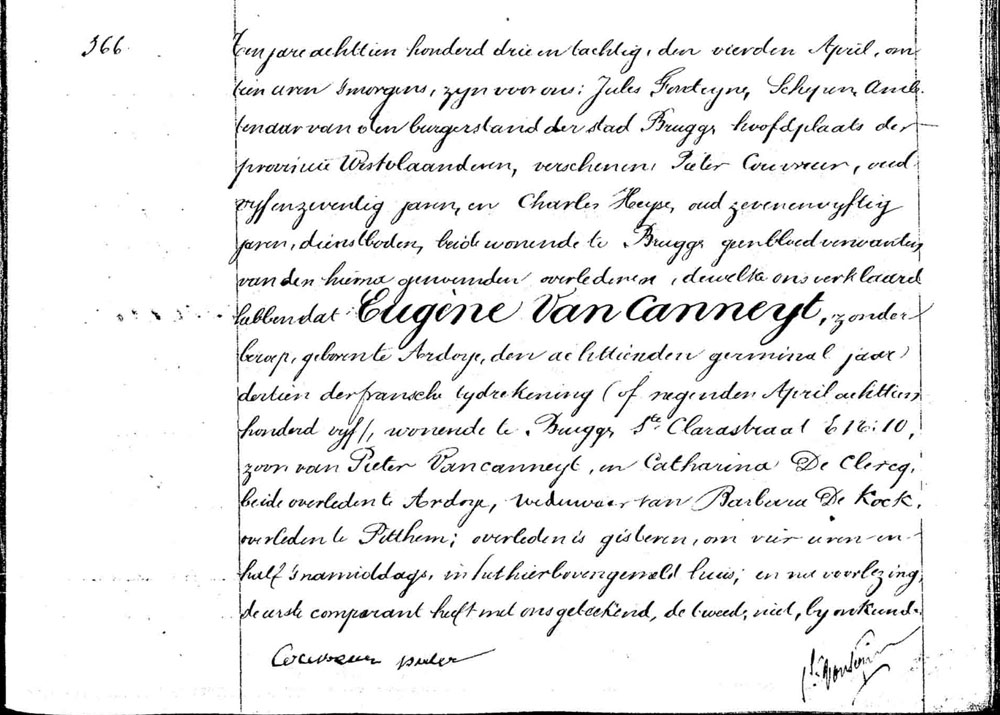 366.
Ten jare achttien honderd drie en tachtig, den vierden April, om
tien uren 's morgens, zyn voor ons: Jules Fonteyne, Schepen, Amb-
tenaar van den burgerstand der stad Brugge hoofdplaats der
provincie Westvlaanderen, verschenen, Pieter Couvreur, oud
vyf en zeventig jaren, en Charles Heyse, oud zevenenvyftig
jaren, dienstboden, beide wonende te Brugge geen bloedverwanten
van den hierna genoemden overledenen, dewelke ons verklaard
hebben dat Eugène Van Canneyt, zonder
beroep, geboren te Ardoye, den achttienden germinal jaar
dertien der fransche tydrekening (of negenden April achttien
honderd vyf), wonende te Brugge Ste Clarastraat E 16:10,
zoon van Pieter Vancanneyt, en Catharina De Clercq,
beide overleden te Ardoye, weduwaar van Barbara De Kock,
overleden te Pitthem; overleden is gisteren, om vier uren en
half 's namiddags, in het hierboven gemeld huis; en na voorlezing,
de eerste comparant heeft met ons geteekend, de tweede, niet, by onkunde.
Couvreur pieter